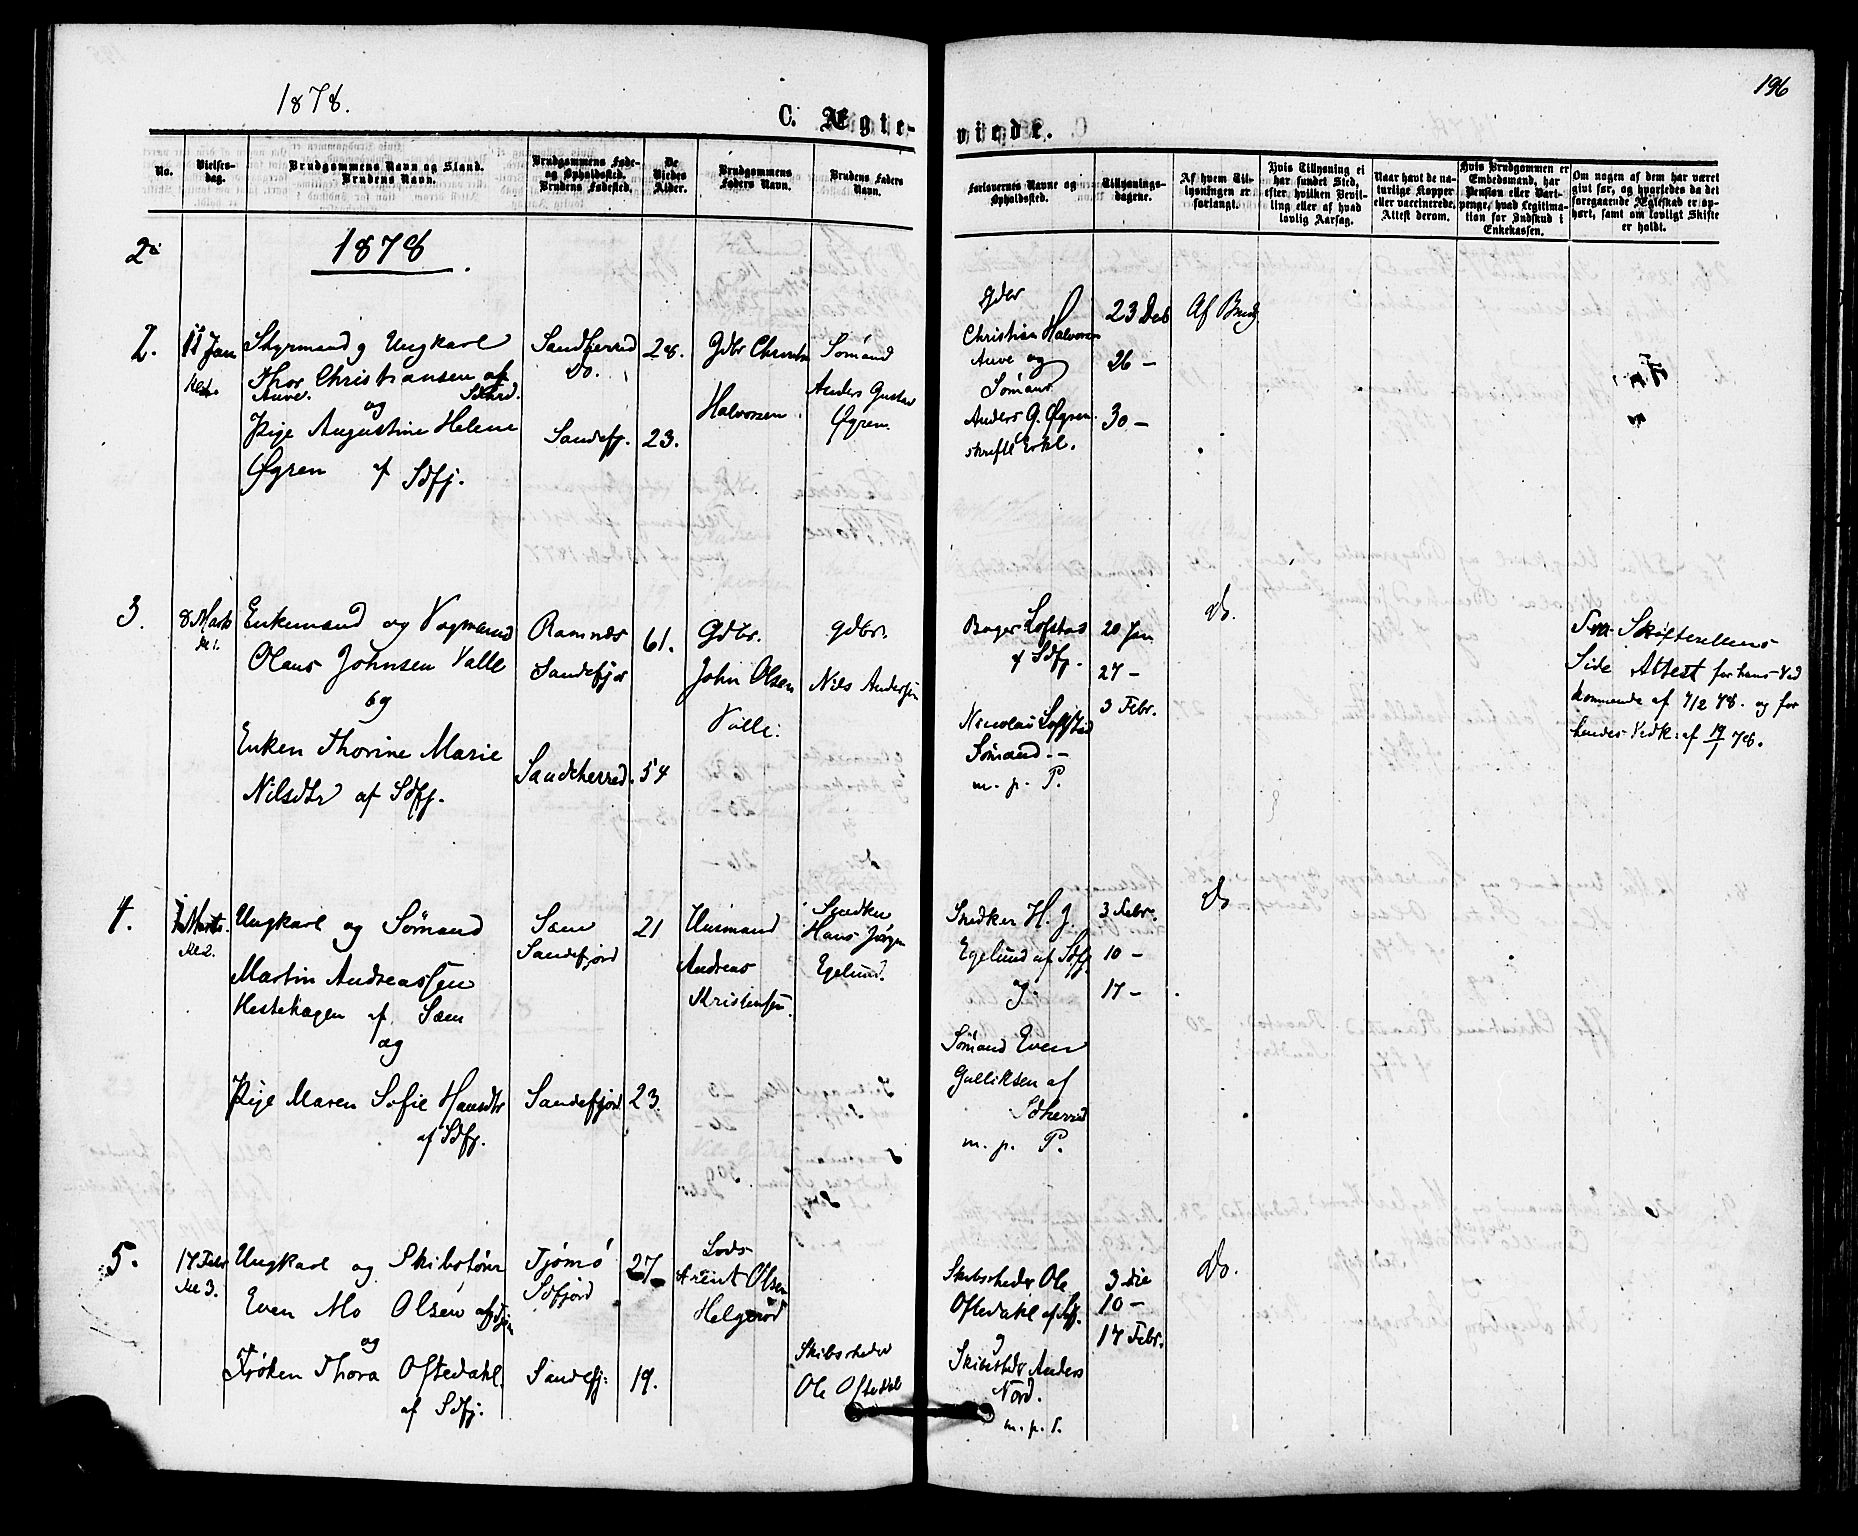 196
1878.
C. Ægte-
viede.
No.
Vielses-
dag.
Brudgommens Navn og Stand.
Brudens Navn.
Brudgommens Føde-
og Opholdssted.
Brudens Fødested.
De
Viedes
Alder.
Brudgommens
Faders Navn.
Brudens Faders
Navn.
Forlovernes Navne og
Opholdssted.
Tillysnings-
dagene.
Af hvem Til-
lysningen er
forlangt.
Hvis Tillysning ei
har fundet Sted,
efter hvilken Bevil-
ling eller af hvad
lovlig Aarsag.
Naar havt de na-
turlige Kopper
eller vaccinerede,
Attest derom.
Hvis Brudgommen er
Embedsmand, har
Pension eller Vart-
penge, hvad Legitima-
tion for Indskud i
Enkekassen.
Om nogen af dem har været
givt før, og hvorledes da det
foregaaende Ægteskab er op-
hørt, samt om lovligt Skifte
er holdt.
1878
2.
11 Jan
Styrmand og Ungkarl
Thor Christiansen af
Auve.
og
Pige Augustine Helene
Øgren af Sdfj.
Sandherred
Do.
Sandefj.
28.
23.
Gdbr
Halvorsen.
Sømand
Anders Gustav
Øgren.
Gdbr
Christian Halvorsen
Auve og
Sømand
Anders G. Øgren.
skriftl Erkl.
23 Deb
26 —
30 —
Af Brudg
3.
8 Marts
Kl 1.
Enkemand og Vognmand
Olaus Johnsen Valle
og
Enken Thorine Marie
Nilsdtr af Sdfj.
Ramnæs
Sandefjor
Sandeherred.
61.
54
Gdbr.
John Olsen
Valle.
gdbr.
Nils Andersen
Bager Lofstad
af Sdfj.
Nicolai Lofstad
Sømand. —
m. p. P.
20 Jan
27 —
3 Febr.
Do.
Skifterettens
Side Attest for hans Ved
kommende af 7/2 78. og for
hendes Vedk: af 19/1 78.
4.
Kl 2.
Ungkarl og Sømand
Martin Andreassen
Hestehagen af Sæm
og
Pige Maren Sofie Hansdtr
af Sdfj.
Sæm
Sandefjord
Sandefjord
21
23.
Husmand
Andreas
Kristensen.
Snedker
Hans Jörgen
Egelund.
Snedker H. J.
Egelund af Sdfj
og
Sømand Even
Gulliksen af
Sdherred
m. p. P.
3 Febr.
10 —
17 —
Do
5.
17 Febr
Kl 3.
Ungkarl og Skibsfører
Even Mo Olsen af
og
Frøken Thora Oftedahl.
af Sdfj.
Tjömö
Sdfjord
Sandefj:
27
19.
Lods
Arent Olsen
Helgerød
Skibsreder
Ole Oftedal
Skibsreder Ole
Oftedahl af Sdfj.
og
Skibsreder Anders
Nord.
m. p. P.
3 die
10 —
17 Febr.
Do.